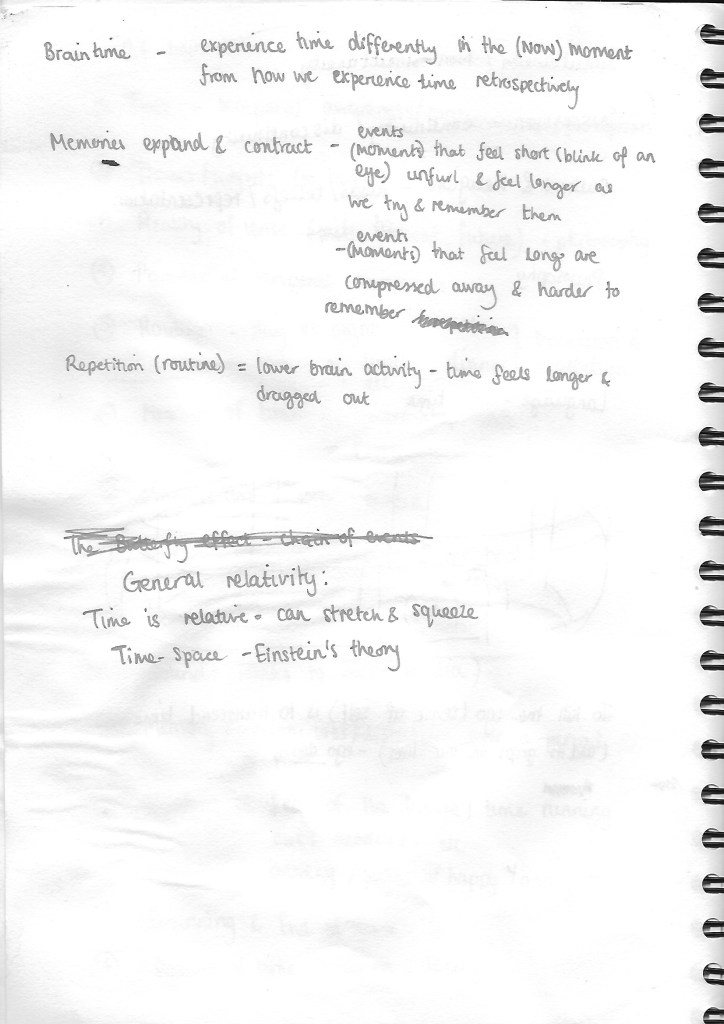 Brain time - experience time differently in the (now) moment
from how we experience time retrospectively
Memories expand & contract - events
(moments) that feel short (blink of an
eye) unfurl & feel longer as
we try & remember them
events
- (moments) that feel long are
compressed away & harder to
remember
Repetition (routine) = lower brain activity - time feels longer &
dragged out
The Butterfly effect - chain of events
General relativity:
Time is relative - can stretch & squeeze
Time-Space - Einstein's theory